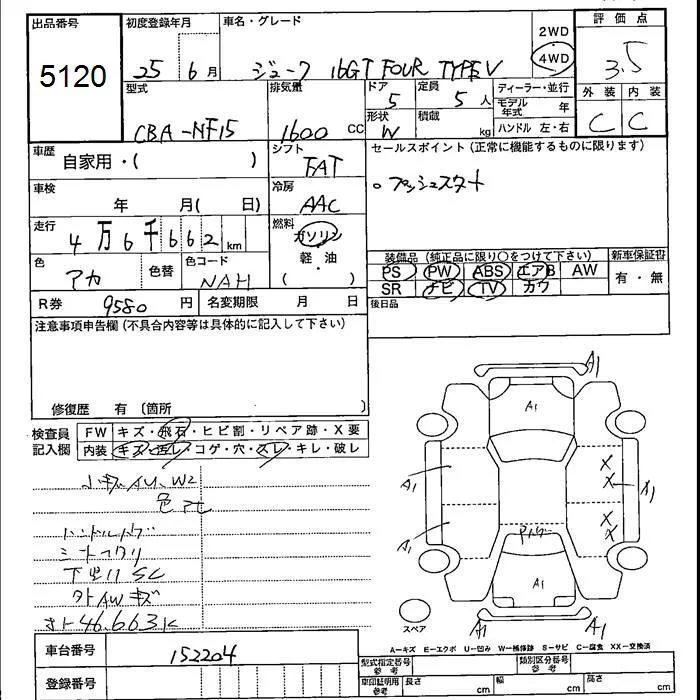 出品番号
5120
初度登録年月
25 6月
車名・グレード
ジューク 16GT FOUR TYPE V
2WD
4WD
評価点
3.5
型式
CBA-NF15
排気量
1600 CC
ドア
5
定員
5人
形状
W
積載
kg
ディーラー・並行
モデル年式 年
ハンドル 左・右
外装 内装
C C
車歴
自家用・( )
シフト
FAT
セールスポイント (正常に機能するものに限ります)
○プッシュスタート
車検
年 月( 日)
冷房
AAC
走行
4万6千662km
燃料
ガソリン
軽・油
( )
装備品 (純正品に限り○をつけて下さい)
新車保証書
PS PW ABS エアB AW
SR ナビ TV カワ
有・無
色
アカ
色替
色コード
NAH
R券 9580円
名変期限 月 日
後日品
注意事項申告欄 (不具合内容等は具体的に記入して下さい)
修復歴 有 〔箇所
検査員記入欄
FW キズ・飛石・ヒビ割・リペア跡・X要
内装 キズ・汚レ・コゲ・穴・スレ・キレ・破レ
小キズ AU、W2
ハンドルハゲ
下回りSC
外AWキズ
オート46.663K
A1
A1
A1
A1
X
X
X
X
A1
A1
A1
A1
スペア
A1
A-キズ E-エクボ U-凹み W-補修跡 S-サビ C-腐食 XX-交換済
車台番号
152204
登録番号
型式指定番号
参考
類別区分番号
参考
車印証明用
参考
長さ cm
幅 cm
高さ cm